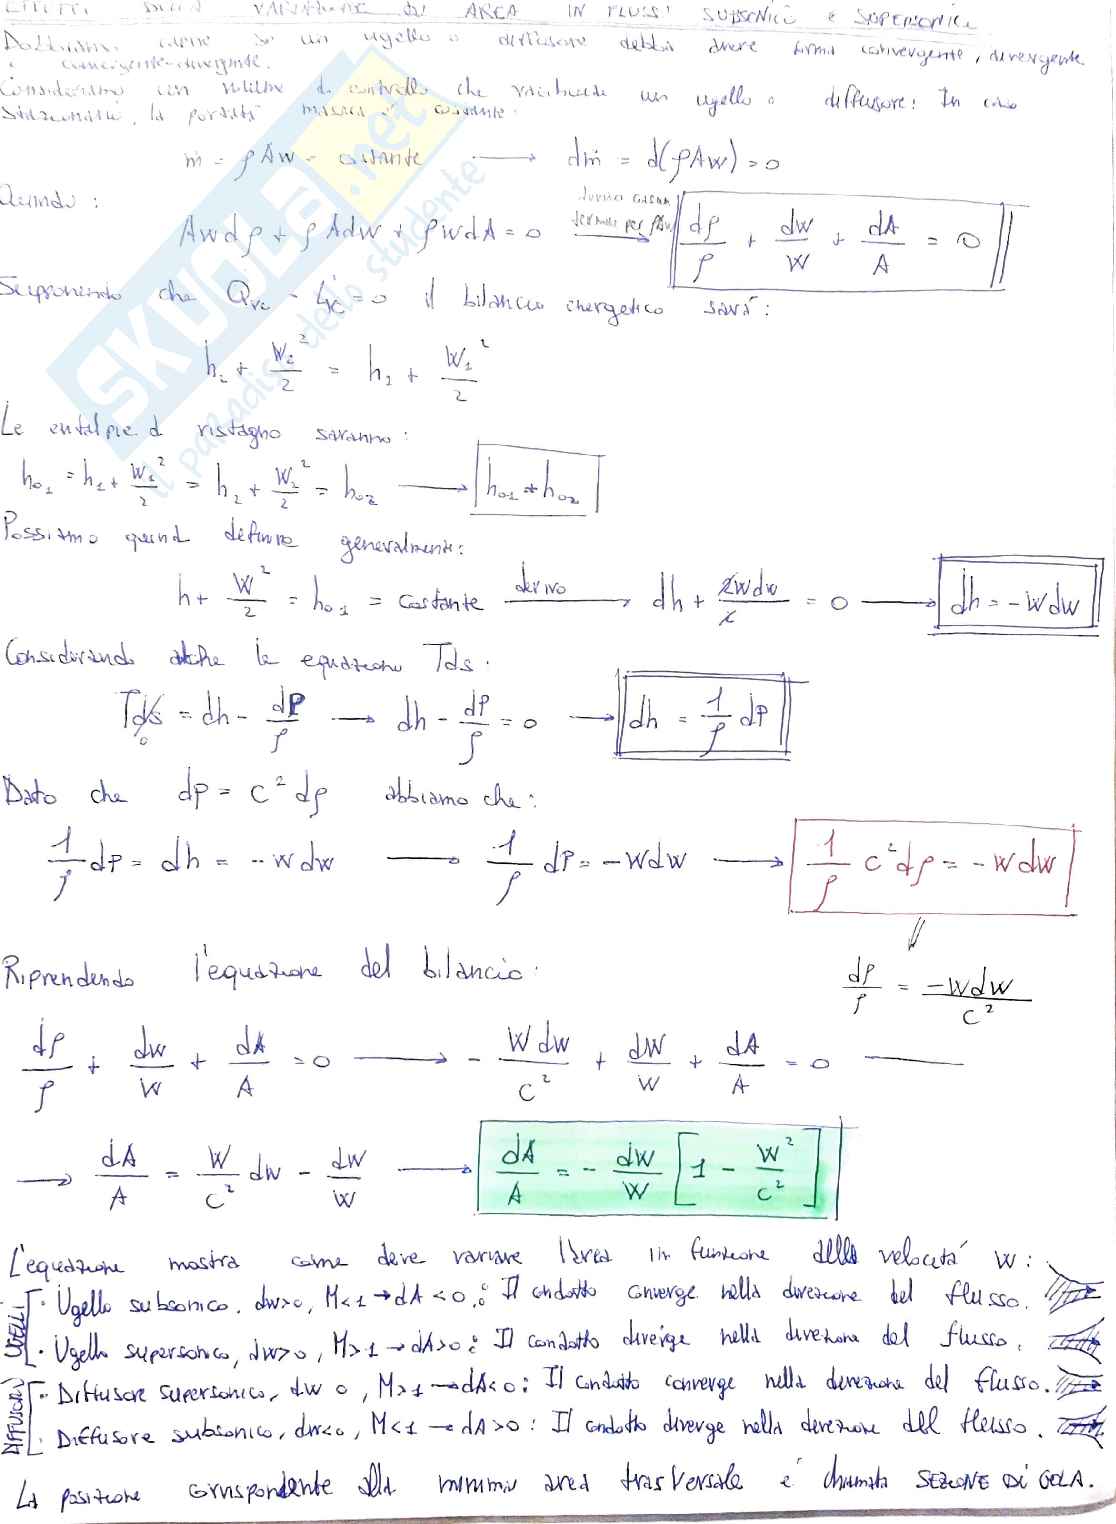 EFFETTI DELLA VARIAZIONE DI AREA IN FLUSSI SUBSONICI E SUPERSONICI
Dobbiamo capire se un ugello o diffusore debba avere forma convergente, divergente
o convergente-divergente.
Consideriamo un volume di controllo che racchiude un ugello o diffusore: In caso
stazionario, la portata massica è costante.
ṁ = ρAw = costante → dṁ = d(ρAw) = 0
Quindi:
Awdρ + ρAdw + ρwdA = 0 → dρ/ρ + dw/w + dA/A = 0
Supponendo che Qvc - Lvc = 0 il bilancio energetico sarà:
h₂ + w₂²/2 = h₁ + w₁²/2
Le entalpie di ristagno saranno:
h₀₁ = h₁ + w₁²/2 = h₂ + w₂²/2 = h₀₂ → h₀₁ = h₀₂
Possiamo quindi definire generalmente:
h + w²/2 = h₀₁ = costante derivo → dh + 2wdw/2 = 0 → dh = -wdw
Considerando anche la equazione Tds.
Tds = dh - dP/ρ → dh - dP/ρ = 0 → dh = 1/ρ dP
0
Dato che dp = c²dρ abbiamo che:
1/ρ dP = dh = -wdw → 1/ρ dP = -wdw → 1/ρ c²dρ = -wdw
Riprendendo l'equazione del bilancio: dρ/ρ = -wdw/c²
dρ/ρ + dw/w + dA/A = 0 → - wdw/c² + dw/w + dA/A = 0
→ dA/A = w/c² dw - dw/w → dA/A = - dw/w [1 - w²/c²]
L'equazione mostra come deve variare l'area in funzione della velocità w:
UGELLI
· Ugello subsonico, dw>0, M<1 → dA<0: Il condotto converge nella direzione del flusso.
· Ugello supersonico, dw>0, M>1 → dA>0: Il condotto diverge nella direzione del flusso.
DIFFUSORI
· Diffusore supersonico, dw 0, M>1 → dA<0: Il condotto converge nella direzione del flusso.
· Diffusore subsonico, dw<0, M<1 → dA>0: Il condotto diverge nella direzione del flusso.
La posizione corrispondente alla minima area trasversale è chiamata SEZIONE DI GOLA.
SKUOLA.net
il paradiso dello studente